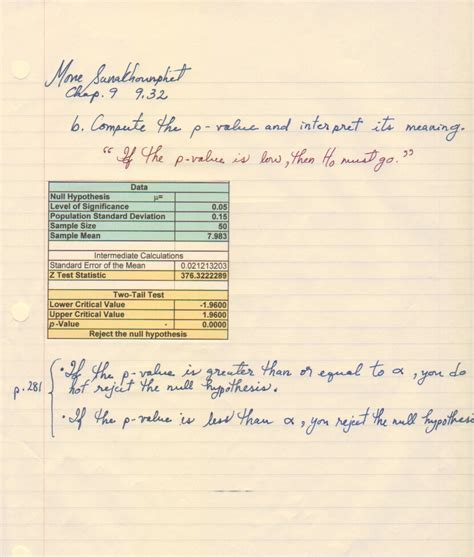 Mone Sunakhounphet
Chap. 9 9.32
b. Compute the p-value and interpret its meaning.
"If the p-value is low, then H₀ must go."
Data
Null Hypothesis μ=
Level of Significance 0.05
Population Standard Deviation 0.15
Sample Size 50
Sample Mean 7.983
Intermediate Calculations
Standard Error of the Mean 0.021213203
Z Test Statistic 376.3222289
Two-Tail Test
Lower Critical Value -1.9600
Upper Critical Value 1.9600
p-Value 0.0000
Reject the null hypothesis
• If the p-value is greater than or equal to α, you do
p. 281 not reject the null hypothesis.
• If the p-value is less than α, you reject the null hypothesis